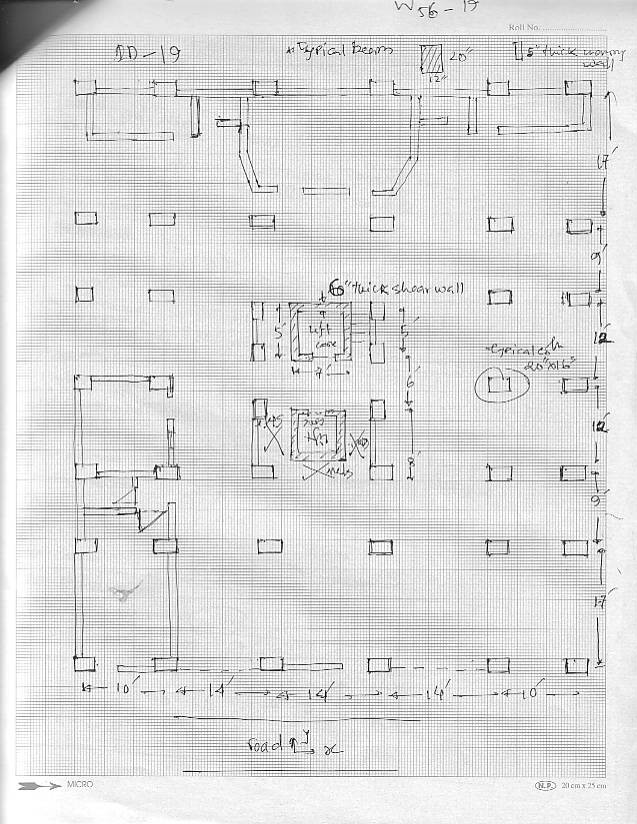 W56-19
Roll No.
ID-19
* Typical beam
20"
12"
5" thick
wall
17'
9'
6" thick shear wall
5'
Lift
core
5'
12'
7'
6'
Typical
20"x16"
Lift
core
12'
8'
9'
17'
10'
14'
14'
14'
10'
road
y
x
MICRO
N.P.
20 cm x 25 cm